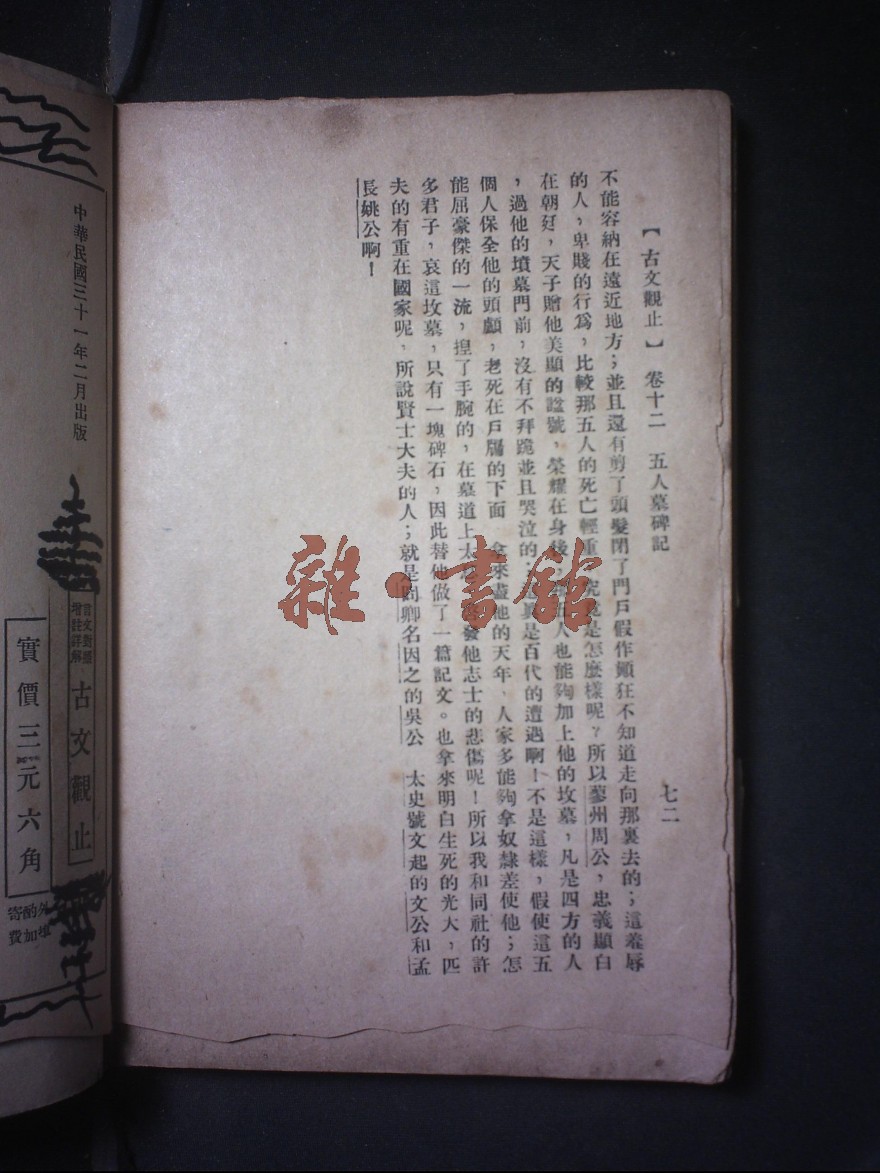 【古文觀止】 卷十二 五人墓碑記 七二
不能容納在遠近地方；並且還有剪了頭髮閉了門戶假作顚狂不知道走向那裏去的；這羞辱
的人，卑賤的行爲，比較那五人的死亡輕重，究竟是怎麽樣呢？所以蓼州周公，忠義顯白
在朝廷，天子贈他美顯的諡號，榮耀在身後，五人也能夠加上他的坟墓，凡是四方的人
，過他的墳墓門前，沒有不拜跪並且哭泣的；這眞是百代的遭遇啊！不是這樣，假使這五
個人保全他的頭顱，老死在戶牖的下面 拿來盡他的天年，人家多能夠拿奴隸差使他；怎
能屈豪傑的一流，揑了手腕的，在墓道上太息，發他志士的悲傷呢！所以我和同社的許
多君子，哀這坟墓，只有一塊碑石，因此替他做了一篇記文。也拿來明白生死的光大，匹
夫的有重在國家呢，所說賢士大夫的人；就是冏卿名因之的吳公 太史號文起的文公和孟
長姚公啊！
雜·書館
中華民國三十一年二月出版
言文對照
增註詳解
古文觀止
實價三元六角
外埠
酌加
寄費